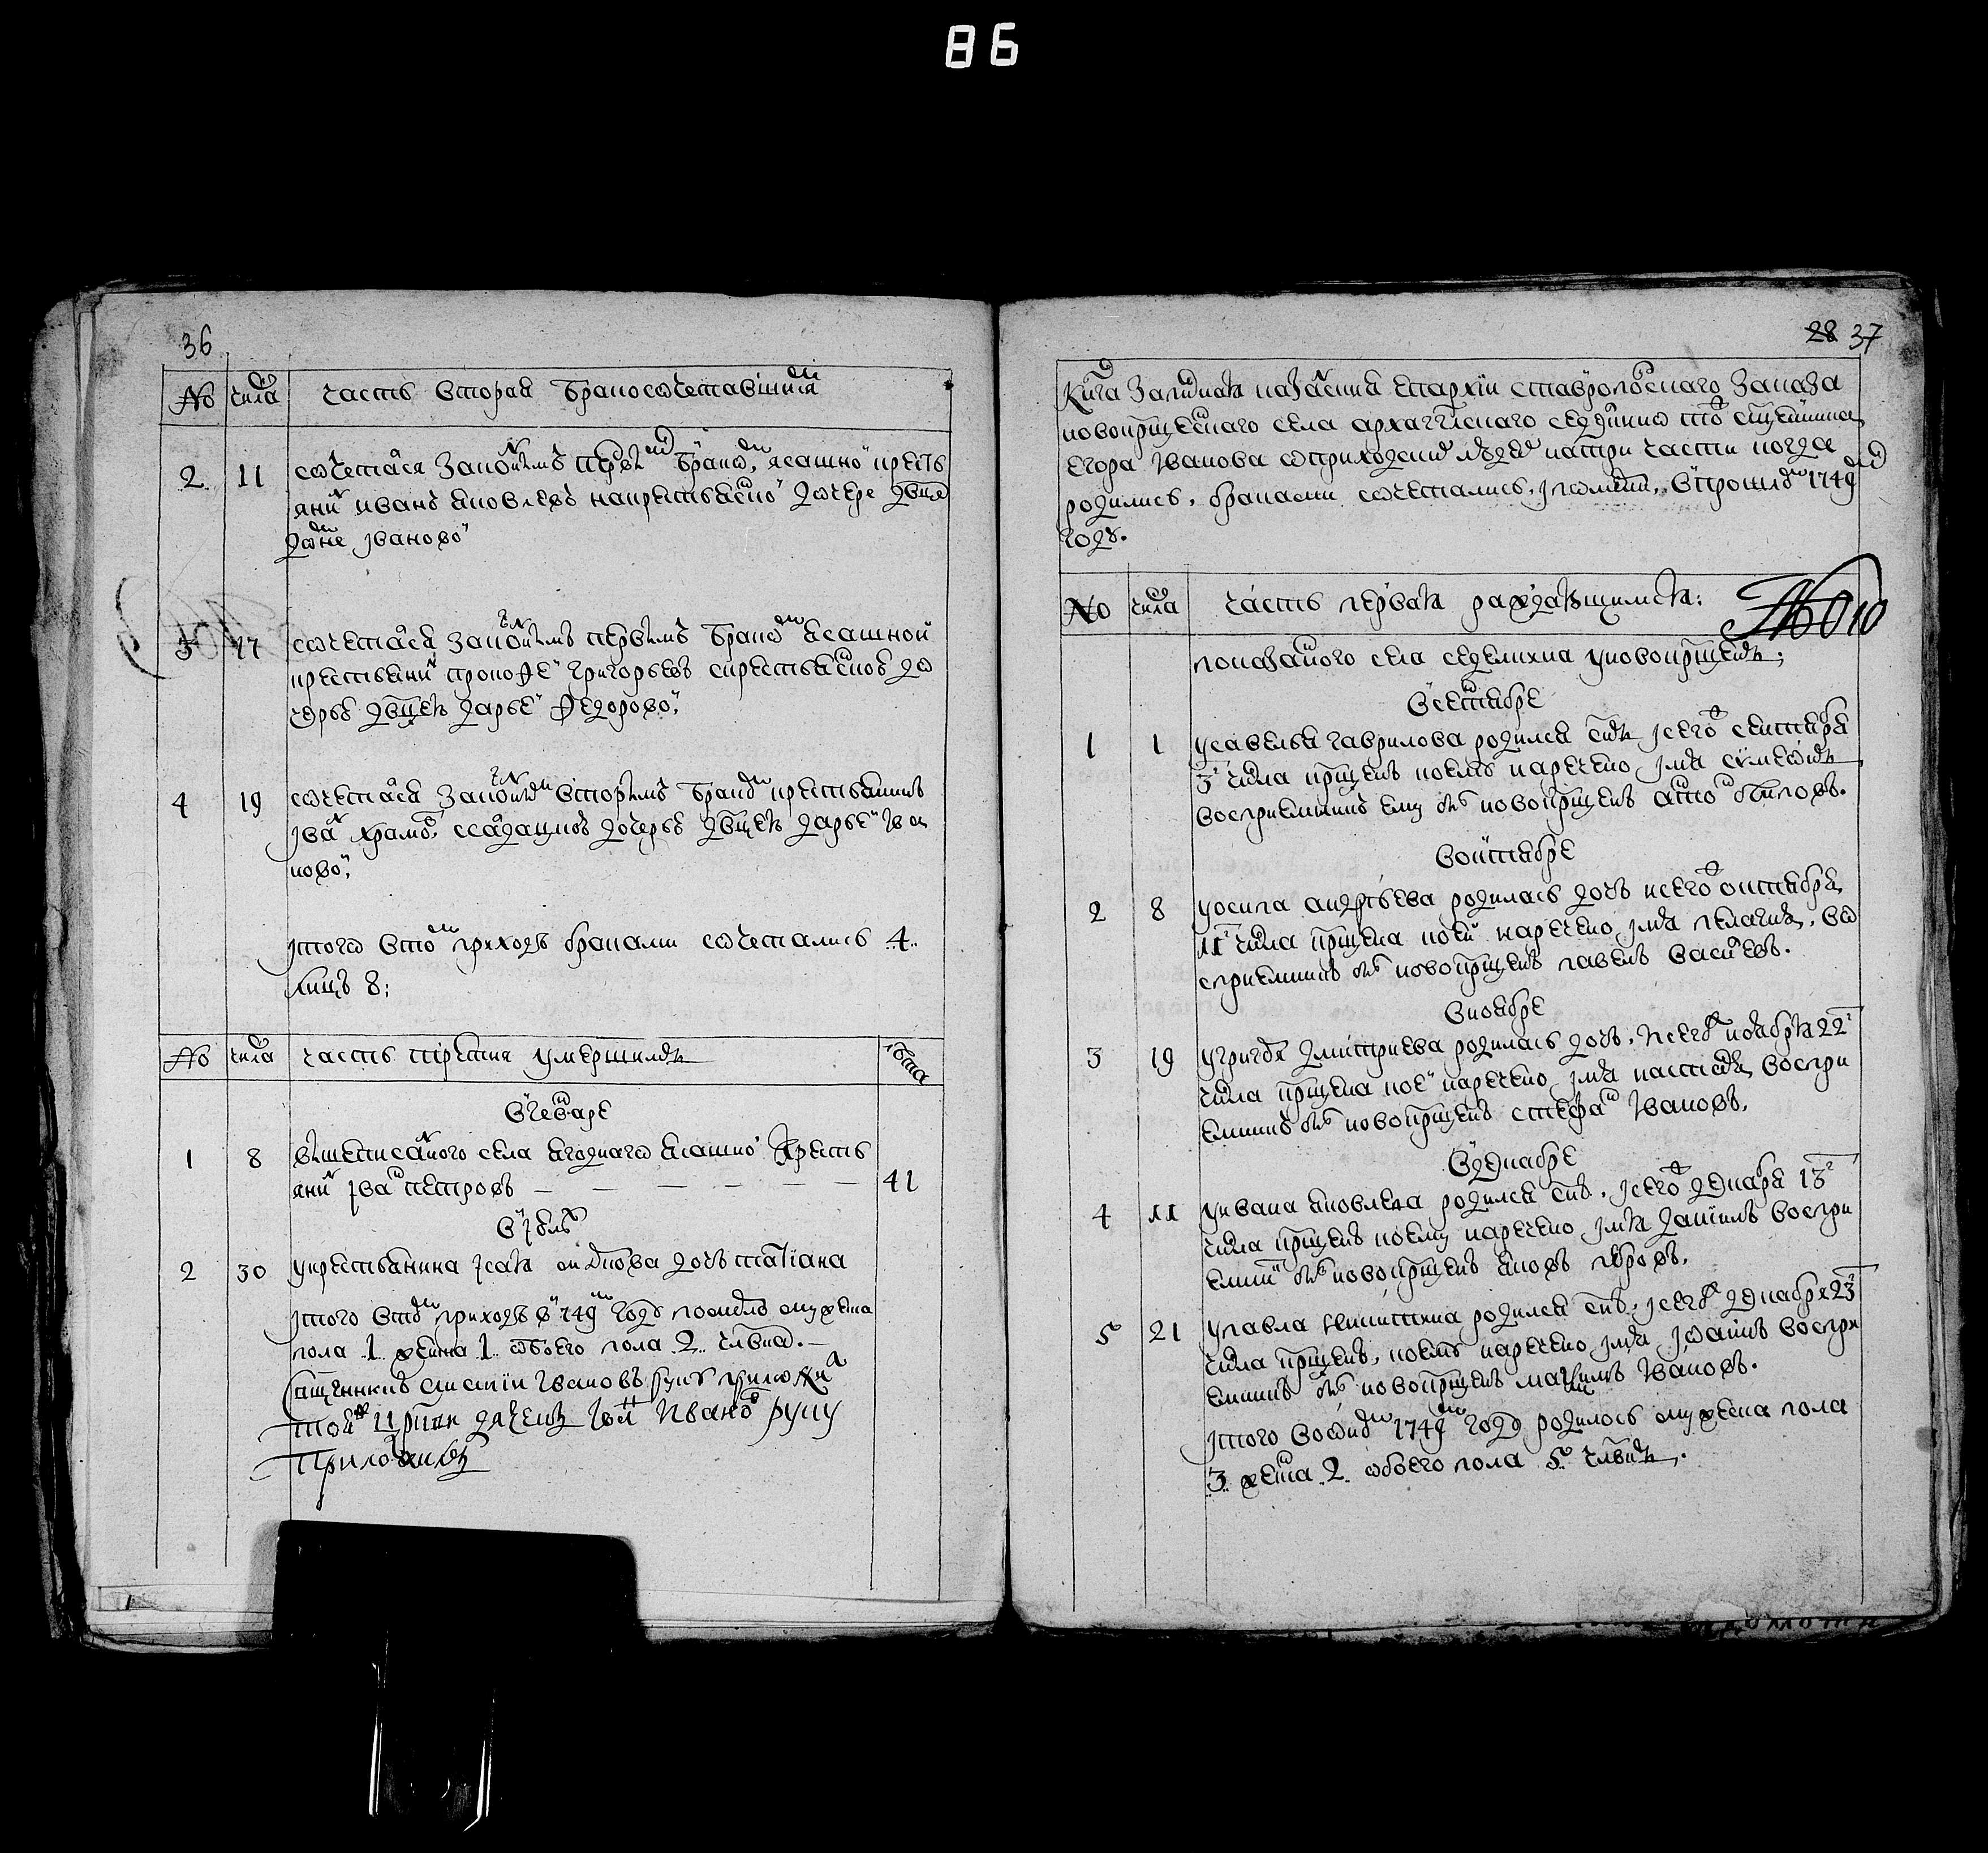 86
36
№ числа часть вторая бракосочетавшихся
2 11 сочетася законнымъ первымъ бракомъ ясашной кресть
янинъ иванъ яковлевъ на крестьянской дочере девице
Ивановой
3 17 сочетася законнымъ первымъ бракомъ ясашной
крестьянинъ прокофей григорьевъ с крестьянскою до
черью девицею дарьей федоровой
4 19 сочетася законнымъ вторымъ бракомъ крестьянинъ
Иванъ дочерью девицею дарьей Ива
новой
Итого в томъ приходе браками сочетались 4
лицъ 8
№ числа часть третия умершихъ лѣта
в генваре
1 8 вышеписанного села ягоднаго ясашной крестья
нинъ Иванъ петровъ 41
в июлѣ
2 30 у крестьянина Исая дочь татиана
Итого в томъ приходе в 749 году мужеска
пола 1 женска 1 обоего пола 2 человека
священникъ Ивановъ руку приложилъ
той церкви Иванов руку
приложилъ
28 37
Книга записная казанския епархии ставропольскаго заказа
новокрещенскаго села архангелского того священника
егора Иванова о приходскихъ людехъ на три части кто где
родились, браками сочетались, и померли в прошломъ 1749
году.
№ числа часть первая раждающихся:
№ 10
показанного села у новокрещенъ;
в сентябре
1 1 у савелья гаврилова родился сынъ сего сентября
3 числа крещенъ коему наречено имя симеонъ
восприемникъ ему былъ новокрещенъ антонъ
в октябре
2 8 у осипа андреева родилась дочь и сего октября
11 числа крещена коей наречено имя пелагия, во
сприемникъ былъ новокрещенъ павелъ васильевъ.
в ноябре
3 19 у григорья дмитриева родилась дочь. и сего ноября 22
числа крещена коей наречено имя настасья, воспри
емникъ былъ новокрещенъ стефанъ Ивановъ.
в декабре
4 11 у ивана яковлева родился сынъ. сего декабря 13
числа крещенъ коему наречено имя данiилъ воспри
емникъ былъ новокрещенъ яковъ петровъ.
5 21 у павла никитина родился сынъ. сего декабря 23
числа крещенъ, коему наречено имя Iоаннъ воспри
емникъ былъ новокрещенъ максимъ Ивановъ.
Итого 1749 году родилось мужеска пола
3 женска 2 обоего пола 5 человекъ.